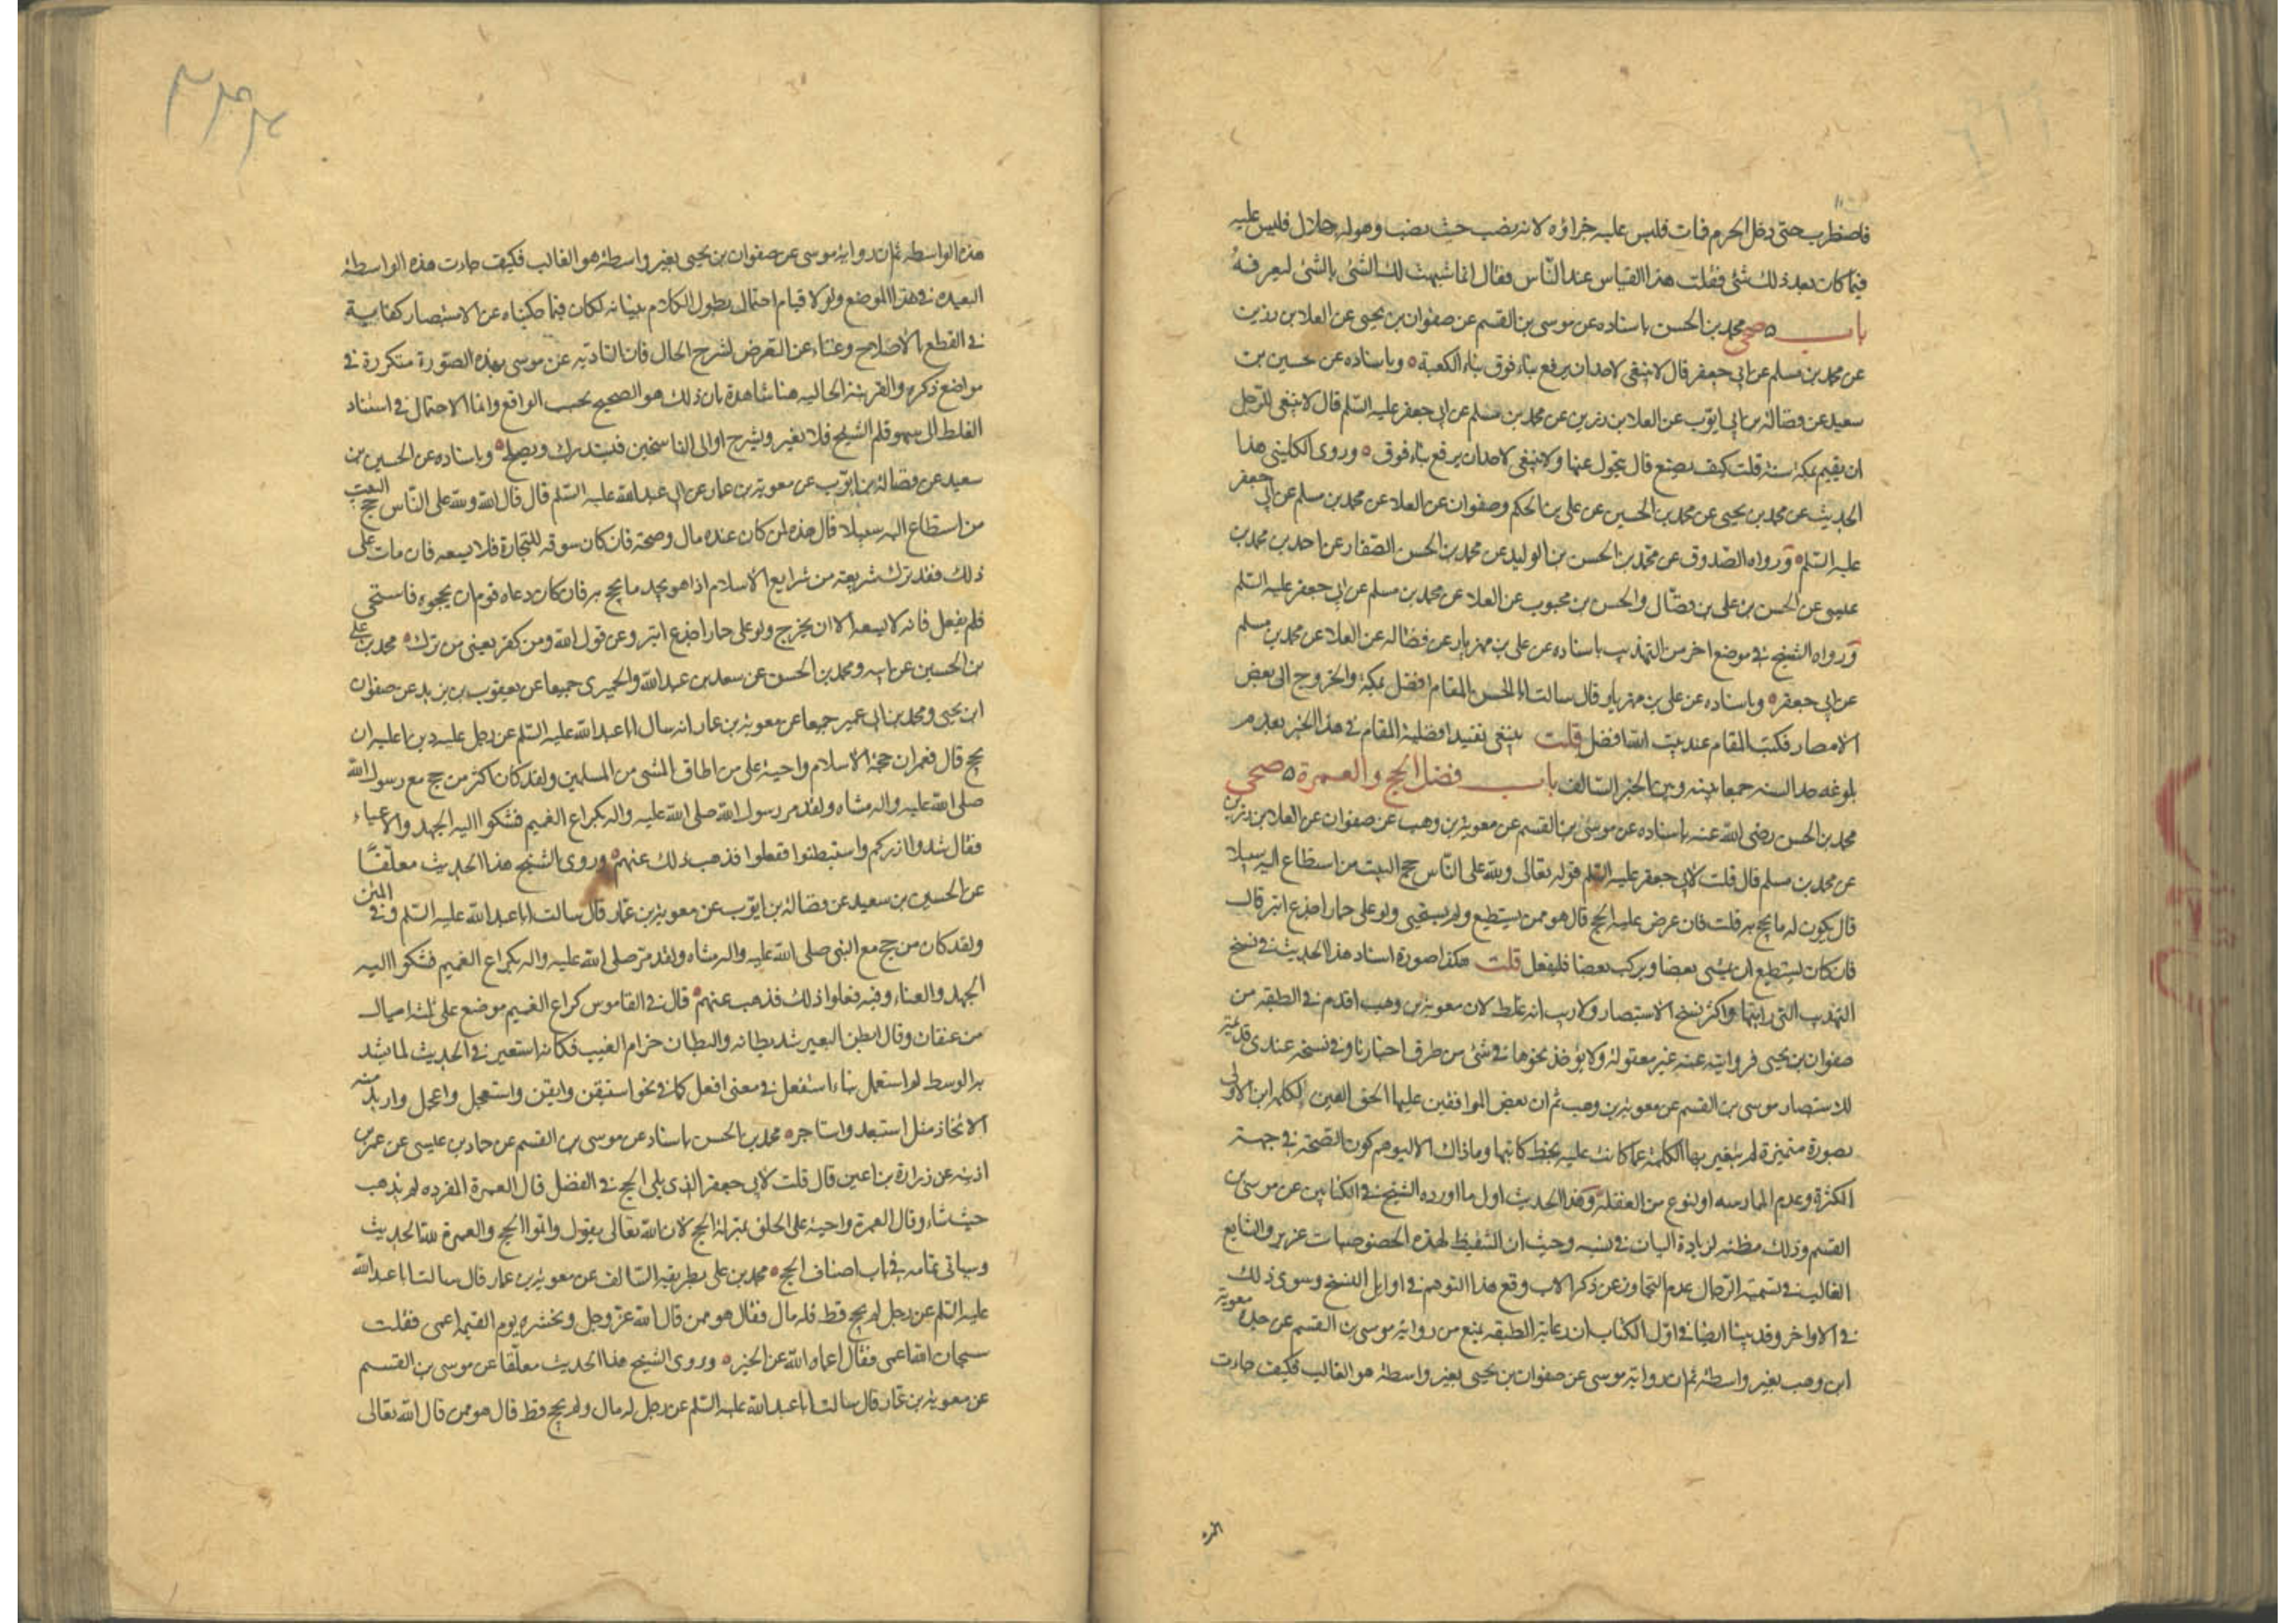 فاضطرب حتى دخل الحرم فمات فليس عليه جزاؤه لانه نصب حيث نصب وهو له حلال فليس عليه
فيما كان بعد ذلك شئ فقلت هذا القياس عند الناس فقال انما شبهت لك الشئ بالشئ لتعرفه
باب ۵ صحى محمد بن الحسن باسناده عن موسى بن القسم عن صفوان بن يحيى عن العلا بن رزين
عن محمد بن مسلم عن ابي جعفر قال لا ينبغى لاحد ان يرفع بناء فوق بناء الكعبة ۵ وباسناده عن حسين بن
سعيد عن فضالة بن ابى ايوب عن العلا بن رزين عن محمد بن مسلم عن ابى جعفر عليه السّلم قال لا ينبغى للرجل
ان يقيم بمكة سنة قلت كيف يصنع قال يتحول عنها ولا ينبغى لاحد ان يرفع بناء فوق ۵ وروى الكلينى هذا
الحديث عن محمد بن يحيى عن محمد بن الحسين عن على بن الحكم وصفوان عن العلا عن محمد بن مسلم عن ابى جعفر
عليه السّلم ۵ ورواه الصّدوق عن محمّد بن الحسن بن الوليد عن محمد بن الحسن الصّفار عن احمد بن محمد بن
عيسى عن الحسن بن على بن فضّال والحسن بن محبوب عن العلا عن محمد بن مسلم عن ابى جعفر عليه السّلم
ورواه الشيخ فى موضع اخر من التهذيب باسناده عن على بن مهزيار عن فضاله عن العلا عن محمد بن مسلم
عن ابى جعفر ۵ وباسناده عن على بن مهزيار قال سالت ابا الحسن المقام افضل بمكة والخروج الى بعض
الامصار فكتب المقام عند بيت الله افضل قلت ينبغى تقييد افضلية المقام فى هذا الخبر بعدم
بلوغه حد السنه جمعا بينه وبين الخبر السّالف باب فضل الحج والعمرة ۵ صحى
محمد بن الحسن رضى الله عنه باسناده عن موسى بن القسم عن معوية بن وهب عن صفوان عن العلا بن رزين
عن محمد بن مسلم قال قلت لابى جعفر عليه السّلم قوله تعالى ولله على النّاس حج البيت من استطاع اليه سبيلا
قال يكون له ما يحج به قلت فان عرض عليه الحج قال هو ممن يستطيع ولم يستحيى ولو على حمار اجذع ابتر قال
فان كان يستطيع ان يمشى بعضا ويركب بعضا فليفعل قلت هكذا صورة اسناد هذا الحديث فى نسخ
التهذيب التى رايتها واكثر نسخ الاستبصار ولا ريب انه غلط لان معوية بن وهب اقدم فى الطبقه من
صفوان بن يحيى فروايته عنه غير معقولة ولا يؤخذ نحوها فى شئ من طرق اخبارنا وفى نسخه عندى قديمة
للاستبصار موسى بن القسم عن معوية بن وهب ثم ان بعض الموافقين عليها الحق الفين لكلمة ابن الاولى
بصورة متميزة لم يتغير بها الكلمة عما كانت عليه بخط كاتبها وما ذاك الا ليوهم كون الصّحة فى جهة
الكثرة وعدم الممارسه او لنوع من الغفلة وهذا الحديث اول ما اورده الشيخ فى الكتابين عن موسى بن
القسم وذلك مظنه لزيادة البيان فى نسبه وحيث ان التيقظ لهذه الخصوصيات عزيز والشايع
الغالب فى تسمية الرّجال عدم التجاوز عن ذكر الاب وقع هذا التوهم فى اوايل النسخ وسوى ذلك
فى الاواخر وقد بينا ايضا فى اوّل الكتاب ان رعاية الطبقه يمنع من رواية موسى بن القسم عن جده معوية
ابن وهب بغير واسطة ثم ان رواية موسى عن صفوان بن يحيى بغير واسطة هو الغالب فكيف جاءت
هذه الواسطة ثم ان رواية موسى عن صفوان بن يحيى بغير واسطة هو الغالب فكيف جاءت هذه الواسطة
البعيده فى هذا الموضع ولو لا قيام احتمال يطول الكلام ببيانه لكان فيما حكيناه عن الاستبصار كفاية
فى القطع بالاصلاح وغناء عن التعرض لشرح الحال فان التاديه عن موسى بهذه الصّورة متكررة فى
مواضع ذكره والقرينة الحاليه هنا شاهدة بان ذلك هو الصحيح بحسب الواقع وانما الاحتمال فى استناد
الغلط الى سهو قلم الشيخ فلا يغير ويشرح او الى الناسخين فيستدرك ويصلح ۵ وباسناده عن الحسين بن
سعيد عن فضالة بن ايوب عن معوية بن عمار عن ابى عبد الله عليه السّلم قال قال الله ولله على النّاس حج البيت
من استطاع اليه سبيلا قال هذه لمن كان عنده مال وصحة فان كان سوقه للتجارة فلا يسعه فان مات على
ذلك فقد ترك شريعة من شرايع الاسلام اذا هو يجد ما يحج به فان كان دعاه قوم ان يحجوه فاستحى
فلم يفعل فانه لا يسعه الا ان يخرج ولو على حمار اجذع ابتر وعن قول الله ومن كفر يعنى من ترك ۵ محمد بن على
بن الحسين عن ابيه ومحمد بن الحسن عن سعد بن عبد الله والحميرى جميعا عن يعقوب بن يزيد عن صفوان
ابن يحيى ومحمد بن ابى عمير جميعا عن معوية بن عمار انه سال ابا عبد الله عليه السّلم عن رجل عليه دين اعليه ان
يحج قال نعم ان حجة الاسلام واجبة على من اطاق المشى من المسلمين ولقد كان اكثر من حج مع رسول الله
صلى الله عليه واله مشاة ولقد مر رسول الله صلى الله عليه واله بكراع الغميم فشكوا اليه الجهد والاعياء
فقال شدوا ازركم واستبطنوا ففعلوا فذهب ذلك عنهم ۵ وروى الشيخ هذا الحديث معلّقا
عن الحسين بن سعيد عن فضالة بن ايوب عن معوية بن عمّار قال سالت ابا عبد الله عليه السّلم وفى المتن
ولقد كان من حج مع النبى صلى الله عليه واله مشاة ولقد مرّ صلى الله عليه واله بكراع الغميم فشكوا اليه
الجهد والعناء وفيه ففعلوا ذلك فذهب عنهم ۵ قال فى القاموس كراع الغميم موضع على ثلثة اميال
من عسفان وقال ابطن البعير شد بطانه والبطان حزام القتب فكانه استعير فى الحديث لما يشد
به الوسط او استعمل بناء استفعل فى معنى افعل كما فى نحو استيقن وايقن واستعجل واعجل واريد منه
الاتخاذ مثل استعبد واستاجر ۵ محمد بن الحسن باسناده عن موسى بن القسم عن حماد بن عيسى عن عمر بن
اذينه عن زرارة بن اعين قال قلت لابى جعفر الذى يلى الحج فى الفضل قال العمرة المفرده ثم يذهب
حيث شاء وقال العمرة واجبة على الخلق بمنزلة الحج لان الله تعالى يقول واتموا الحج والعمرة لله الحديث
وسياتى تمامه فى باب اصناف الحج ۵ محمد بن على بطريقه السّالف عن معوية بن عمار قال سالت ابا عبد الله
عليه السّلم عن رجل لم يحج قط فله مال فقال هو ممن قال الله عزّ وجل ونحشره يوم القيمة اعمى فقلت
سبحان الله اعمى فقال اعماه الله عن الخير ۵ وروى الشيخ هذا الحديث معلّقا عن موسى بن القسم
عن معوية بن عمّار قال سالت ابا عبد الله عليه السّلم عن رجل له مال ولم يحج قط قال هو ممن قال الله تعالى